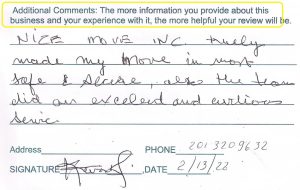 Additional Comments: The more information you provide about this
business and your experience with it, the more helpful your review will be.
NIZE MOVE INC truely
made my move in most
safe & secure, also the team
did an excelent and
Service
Address
PHONE 2013209632
SIGNATURE
,DATE 2/13/22